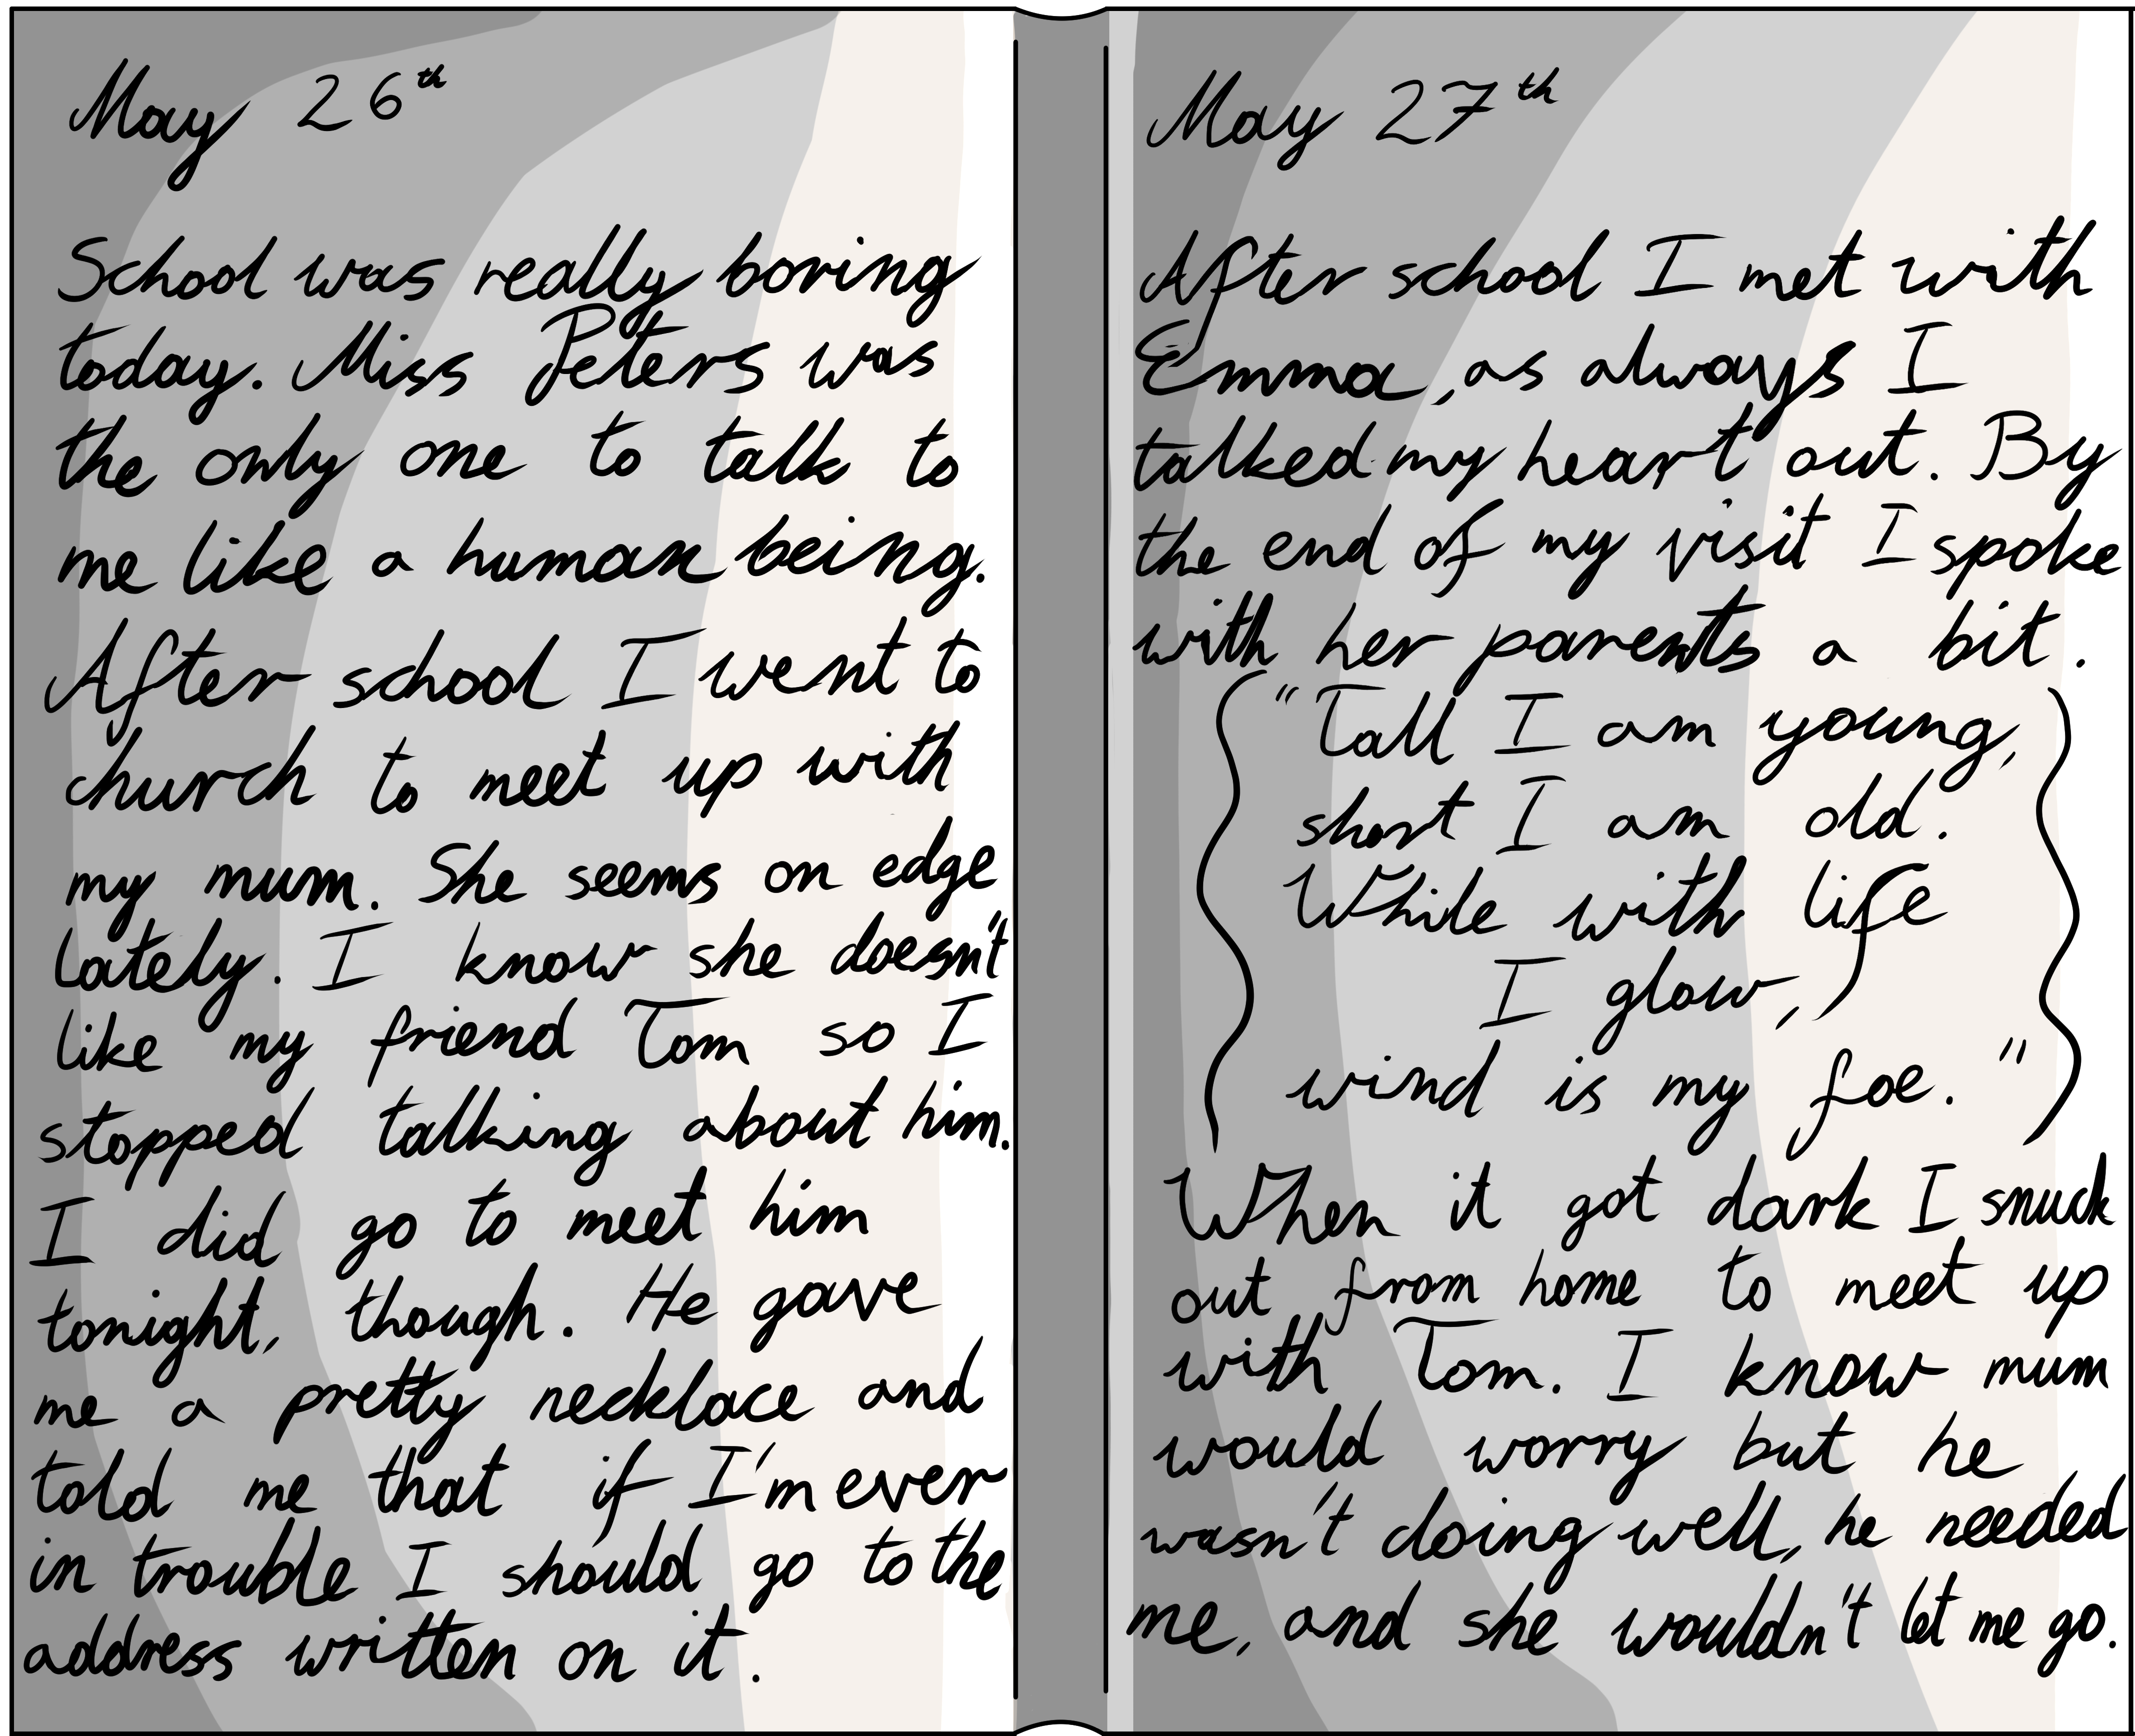 May 26th
School was really boring
today. Miss Peters was
the only one to talk to
me like a human being.
After school I went to
church to meet up with
my mum. She seems on edge
lately. I know she doesn't
like my friend Tom so I
stopped talking about him.
I did go to meet him
tonight, though. He gave
me a pretty necklace and
told me that if I'm ever
in trouble I should go to the
address written on it.
May 27th
After school I met with
Emma, as always I
talked my heart out. By
the end of my visit I spoke
with her parents a bit.
"Tall I am young,
short I am old.
While with life
I glow,
wind is my foe."
When it got dark I snuck
out from home to meet up
with Tom. I know mum
would worry but he
wasn't doing well, he needed
me, and she wouldn't let me go.